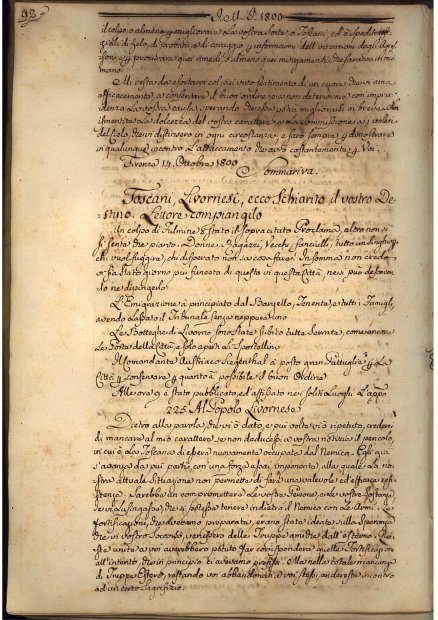 93
A. M. D. 1800
il colpo, o almeno p migliorare la vostra sorte o Toscani, ed ò spedito
di zelo, di probità, e di coraggio p informarmi dell'intenzione degl'
sori, e p procurare quei rimedj, o almeno quei mitigamenti, che saranno in mia
mano.
Mi resta da esortarvi col più vivo sentimento di un cuore, che vi ama
affìcacemente a conservare il buon ordine, e a non deteriorare con impru-
denza la vostra causa, sperando che essa potrà migliorarsi in breve
mettente alla dolcezza del vostro carattere, e alla sommissione a' voleri
del Cielo, che vi distinsero in ogni circostanza, e farò sempre p dimostrare
in qualunque incontro l'attaccamento che avrò costantemente p Voi.
Firenze 14. Ottobre 1800
Sommariva.
Toscani, Livornesi, ecco Schiarito il vostro De-
stino. Lettore compiangilo
Un colpo di fulmine è stato il sopracitato Proclama, altro non si
sente che pianto. Donne, Ragazzi, Vecchi, fanciulli, tutto
chi vuol fuggire, chi disperato non sà cosa fare. In somma non credo
vi sia stato giorno più funesto di questo in questa Città, nè si può
lo nè dipingerlo.
L'Emigrazione à principiato dal Bargello, Tenente, e tutti i Famigli,
avendo lasciato il Tribunale senza neppure uno
Le Botteghe di Livorno sono state subito tutte serrate, come ancora
le Porte della Città, e solo aperti li Sportellini
Il Comandante Austriaco Siegenthal à posto gran Pattuglie p la
Città p conservare p quanto è possibile il buon Ordine
Alle ore 9 è stato pubblicato, ed affissato nei soliti Luoghi l'appo
225. Al Popolo Livornese
Dietro alla parola, che vi ò dato, e più volte vi ò ripetuto, crederei
di mancare al mio carattere, se non deducessi a vostra notizia il pericolo,
in cui è la Toscana di esser nuovamente occupata dal Nemico. Egli già
s'avanza da più parti, con una forza assai imponente, alla quale la no-
stra attuale situazione non permette di fare una valevole, ed efficace resi-
stenza. Sarebbe un compromettere le vostre Persone, e le vostre Sostanze,
se vi lusingassi, che p potesse tenere indietro il Nemico con le Armi. Le
fortificazioni, che avevano preparate, erano state ideate sulla speranza,
che in vostro Soccorso, venissero delle Truppe amiche dall'esterno. Que-
ste unite a voi avrebbero potuto far corrispondere quelle Fortificazioni
all'intento, che in principio ci avevamo prefisso. Ma nella totale mancanza
di Truppe Estere, restando voi abbandonati a voi stessi, andereste incontro
ad un certo Sagrifizio.